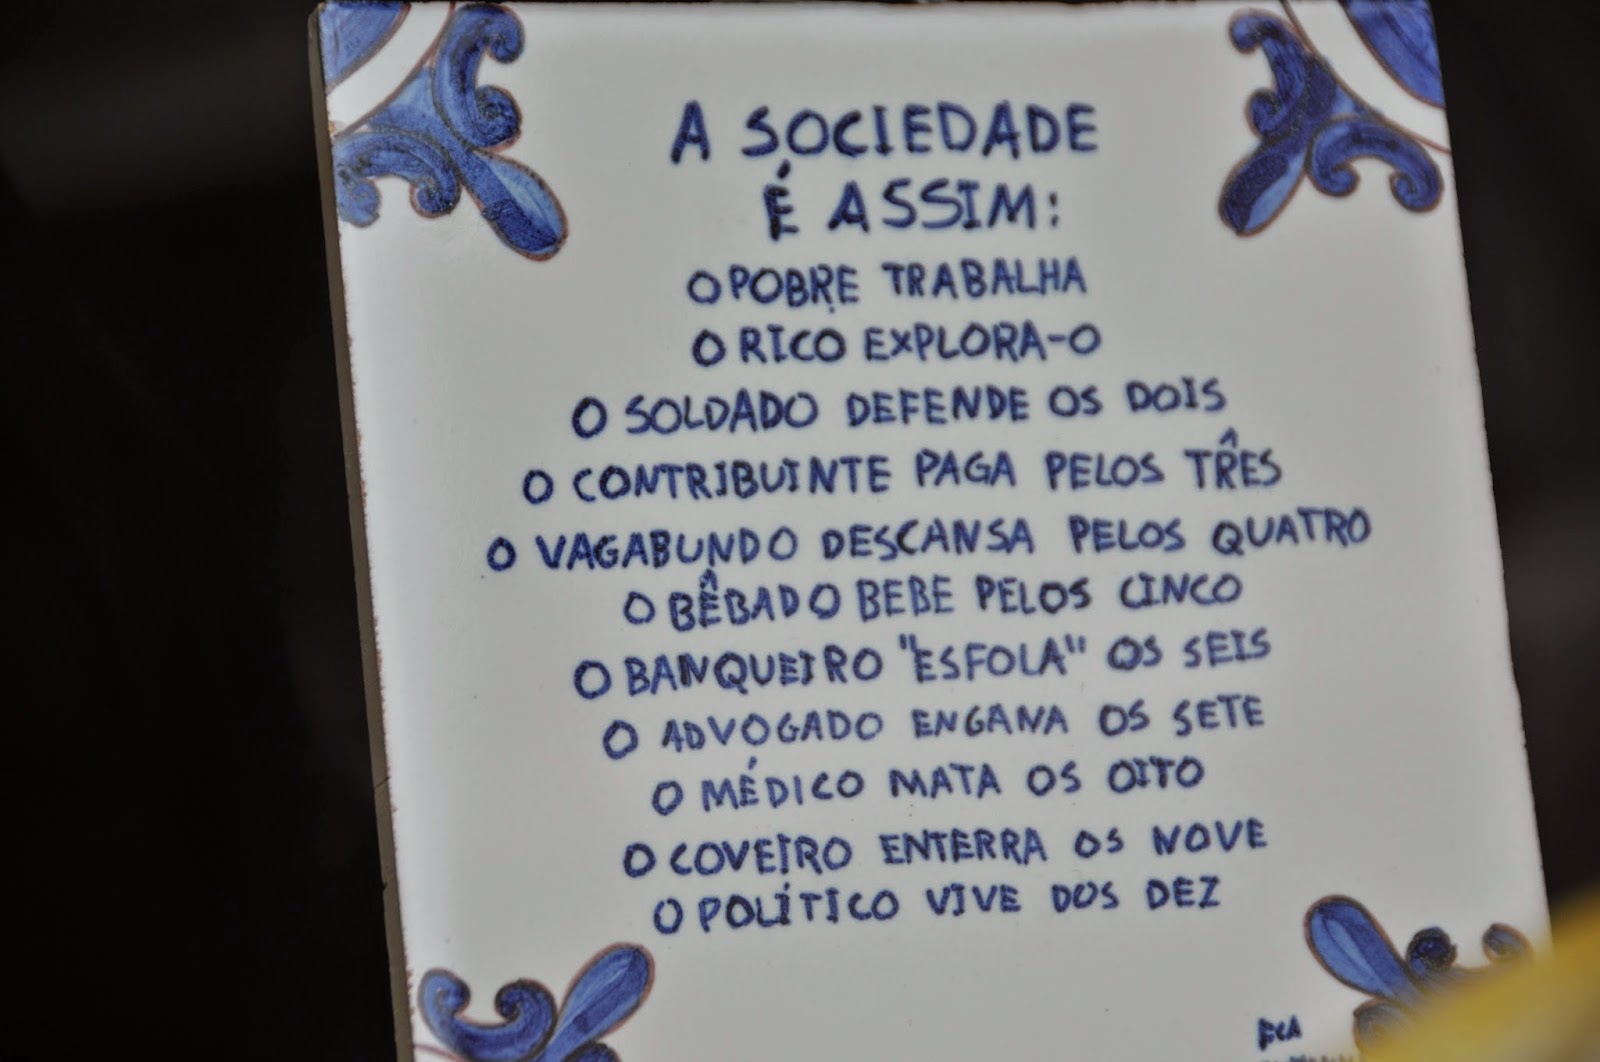 A SOCIEDADE
É ASSIM:
O POBRE TRABALHA
O RICO EXPLORA-O
O SOLDADO DEFENDE OS DOIS
O CONTRIBUINTE PAGA PELOS TRÊS
O VAGABUNDO DESCANSA PELOS QUATRO
O BÊBADO BEBE PELOS CINCO
O BANQUEIRO "ESFOLA" OS SEIS
O ADVOGADO ENGANA OS SETE
O MÉDICO MATA OS OITO
O COVEIRO ENTERRA OS NOVE
O POLÍTICO VIVE DOS DEZ